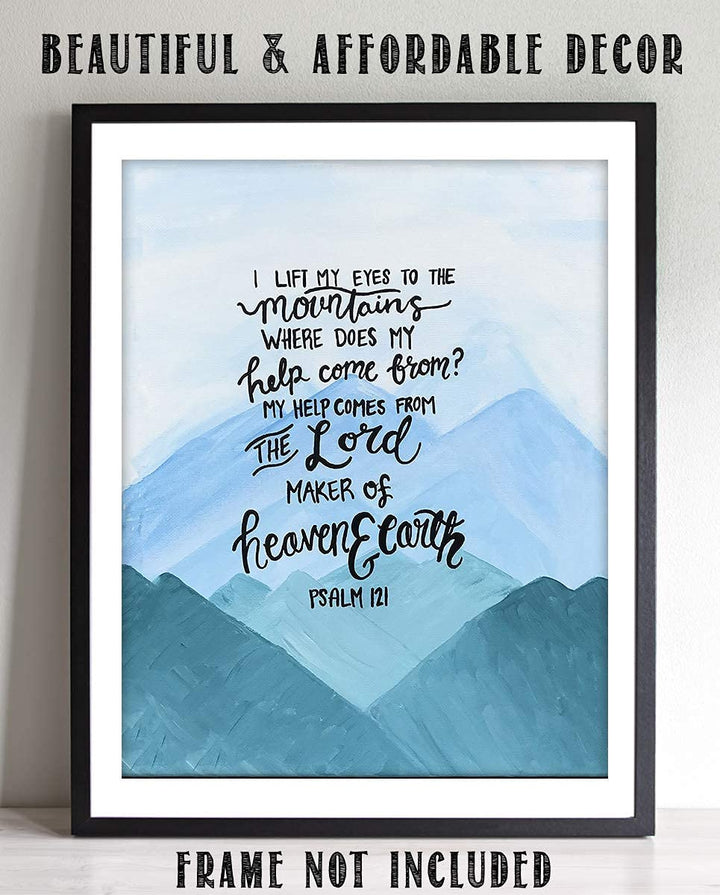 BEAUTIFUL & AFFORDABLE DECOR
I LIFT MY EYES TO THE
mountains
WHERE DOES MY
help come from?
MY HELP COMES FROM
THE Lord
MAKER OF
heaven & earth
PSALM 121
FRAME NOT INCLUDED